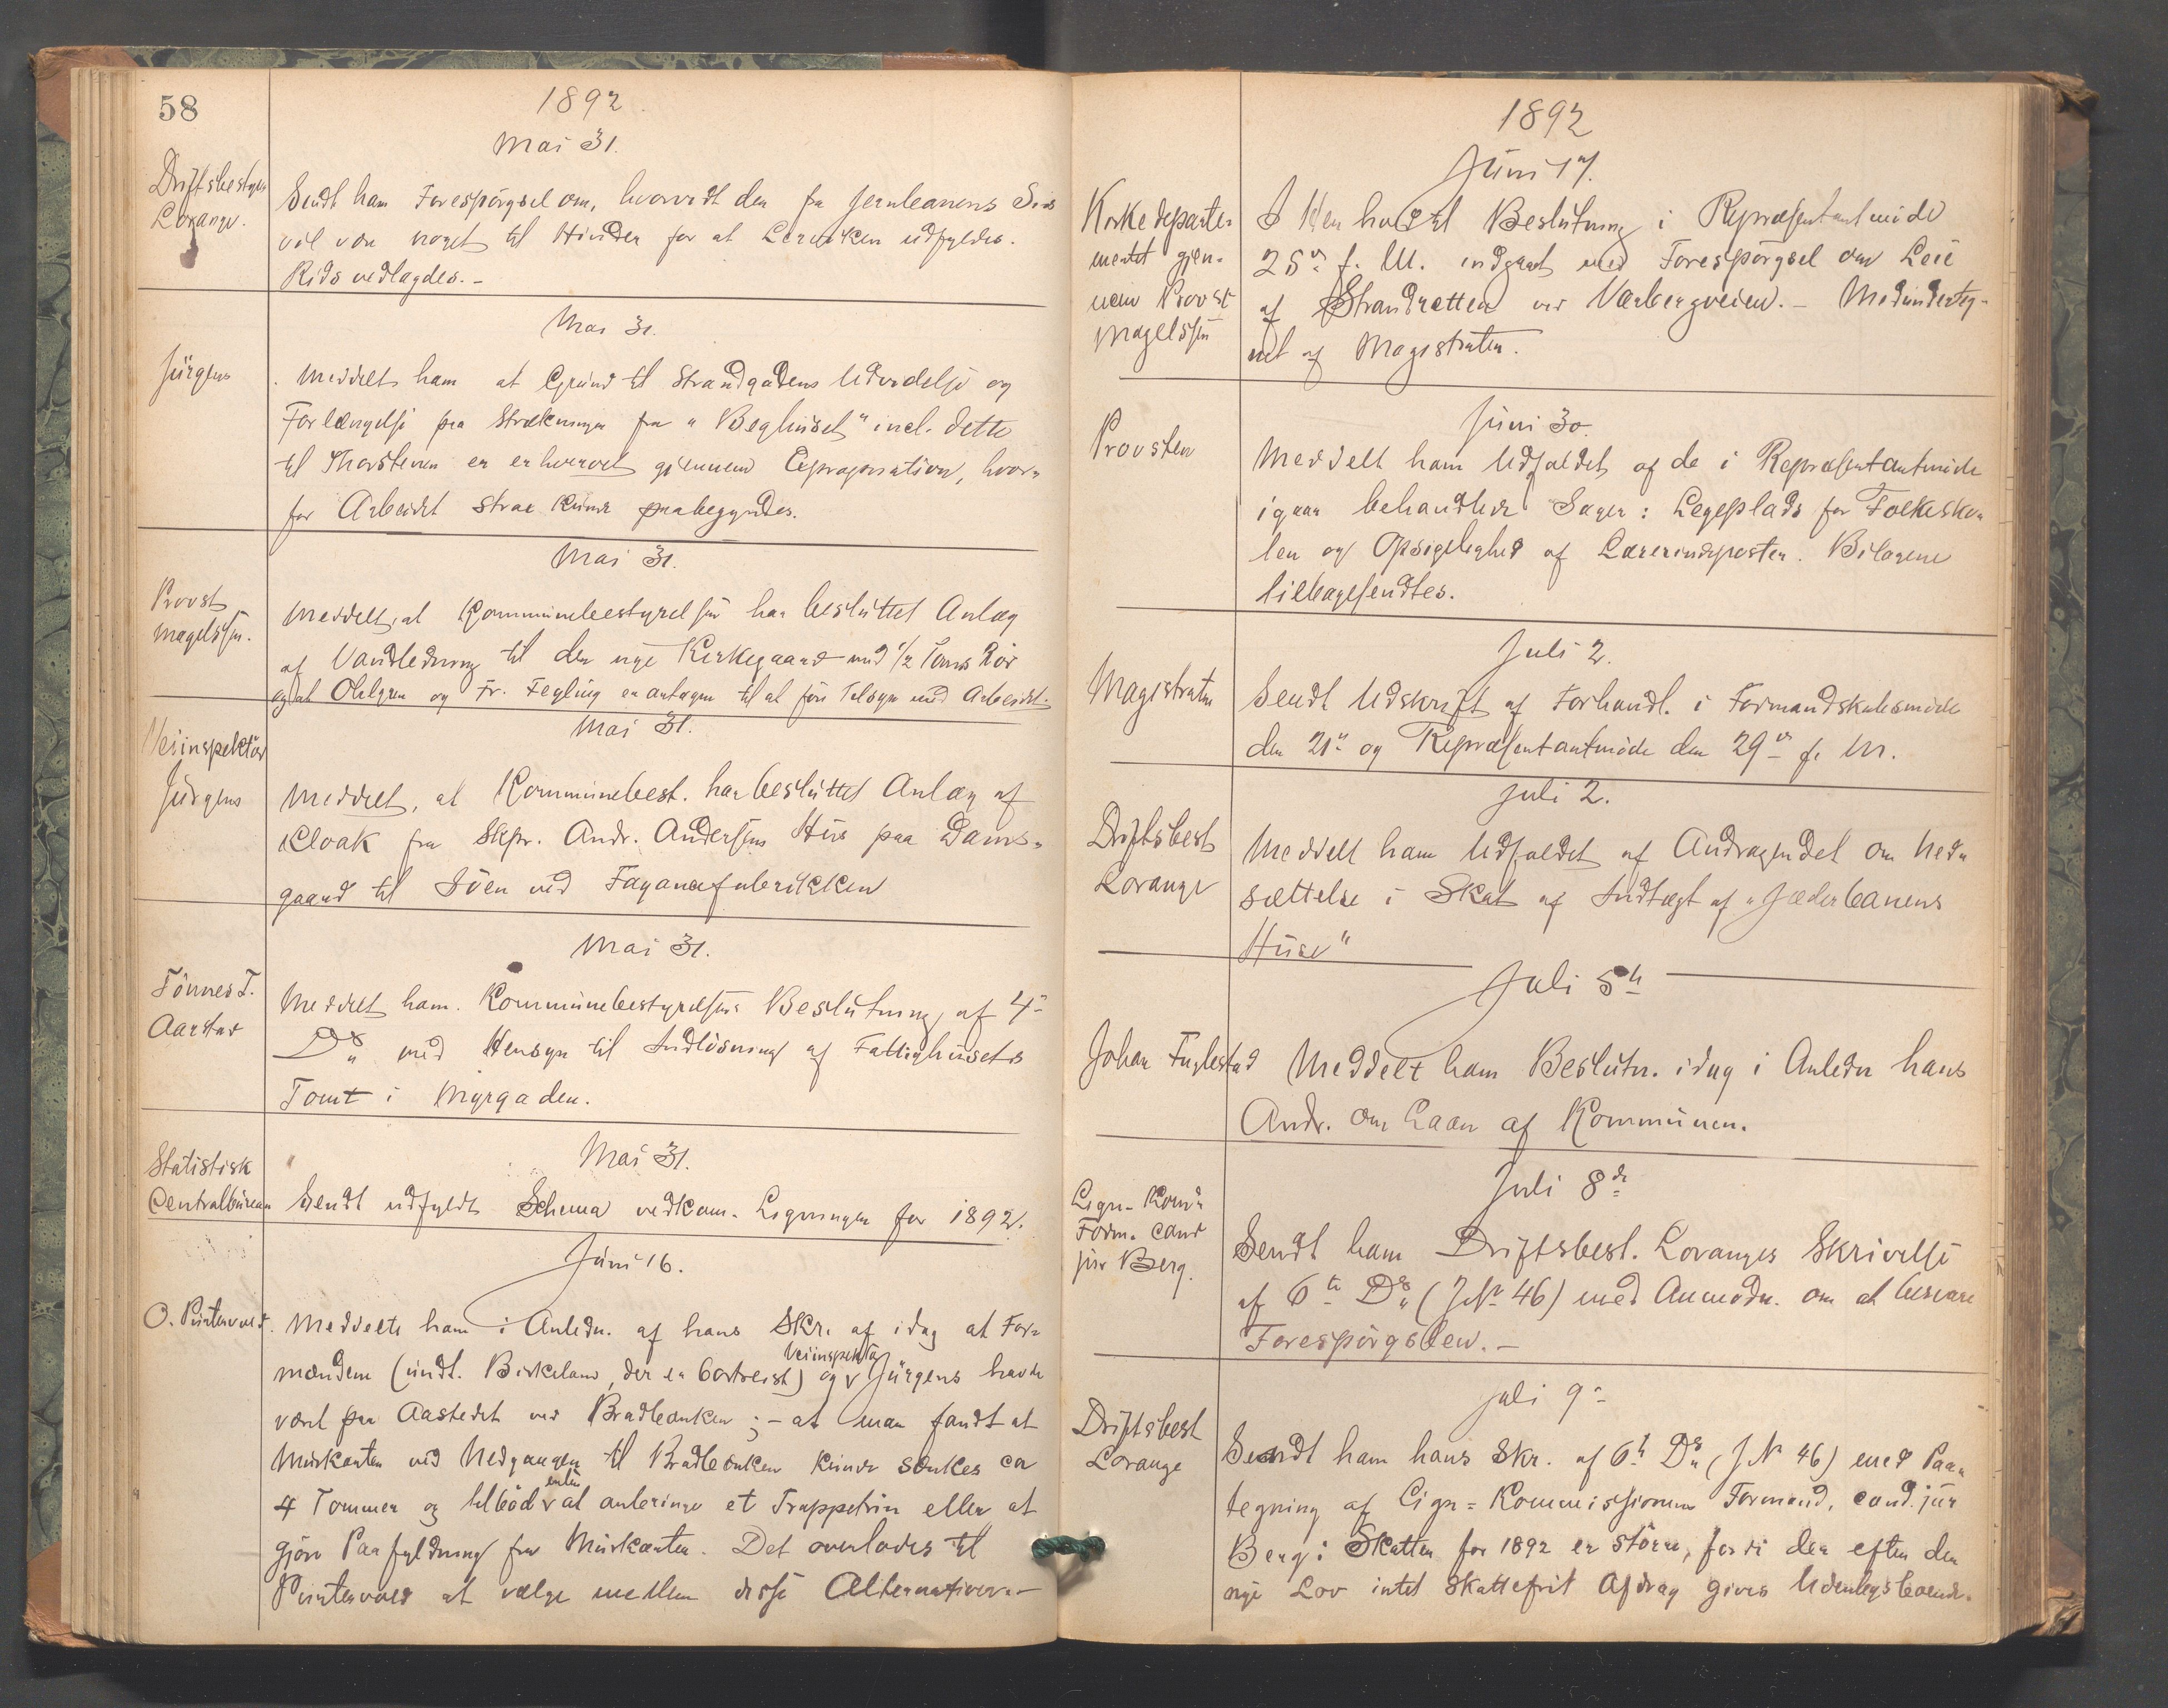 58
1892
Mai 31.
Driftsbestyrer
Lorange.
Sendt ham Forespörgsel om, hvorvidt der fra Jernbanens Side
vil være noget til Hinder for at Lerviken udfyldes.
Rids vedlagdes. -
Mai 31.
Jürgens
Meddelt ham at Grund til Strandgadens Udvidelse og
Forlængelse paa Strækningen fra "Beghuset" incl. dette
til Thorsteinen er erhvervet gjennem Expropriation, hvor-
for Arbeidet strax kunde paabegyndes.
Mai 31.
Provst
Magelssen.
Meddelt, at Kommunebestyrelsen har besluttet Anlæg
af Vandledning til den nye Kirkegaard med 1/2 Toms Rör
og at Ohlgren og Fr. Feyling er antagen til at före Tilsyn med Arbeidet.
Mai 31.
Veiinspektör
Jürgens
Meddelt, at Kommunebest. har besluttet Anlæg af
Kloak fra Skpr. Andr. Andersens Hus paa Dams-
gaard til Söen ved Fayancefabrikken
Mai 31.
Tönnes T.
Aarstad
Meddelt ham Kommunebestyrelsens Beslutning af 4-
Ds. med Hensyn til Indlösning af Fattighusets
Tomt i Myrgaden.
Mai 31.
Statistisk
Centralbureau
Sendt udfyldt Schema vedkom. Ligningen for 1892.
Juni 16.
O. Puntervold.
Meddelte ham i Anledn. af hans Skr. af idag at For-
mændene (undt. Birkeland, der er bortreist) og Veiinspektör Jürgens havde
været paa Aastedet ved Bradbænken; - at man fandt at
Murkanten ved Nedgangen til Bradbænken kunde sænkes ca
4 Tommer og tilböd enten at anbringe et Trappetrin eller at
gjöre Paafyldning fra Murkanten. Det overlades til
Puntervold at vælge mellem disse Alternativer. -
1892
Juni 17.
Kirkedeparte-
mentet gjen-
nem Provst
Magelssen
I Henhold til Beslutning i Repræsentantmöde
25de f. M. indgaaet med Forespörgsel om Leie
af Strandretten ved Varbergveien. - Medunderteg-
net af Magistraten.
Juni 30.
Provsten
Meddelt ham Udfaldet af de i Repræsentantmöde
igaar behandlede Sager: Legeplads for Folkesko-
len og Opsigelighed af Lærerindeposten. Bilagene
tilbagesendtes.
Juli 2.
Magistraten
Sendt Udskrift af Forhandl. i Formandskabsmöde
den 21de og Repræsentantmöde den 29de f. M.
Juli 2.
Driftsbest
Lorange
Meddelt ham Udfaldet af Andragendet om Ned-
sættelse i Skat af Indtægt af "Jæderbanens
Huse"
Juli 5te
Johan Fuglestad
Meddelt ham Beslutn. idag i Anledn hans
Andr. om Laan af Kommunen.
Juli 8de
Lign- Kom-
Form. cand
jur Berg.
Sendt ham Driftsbest. Loranges Skrivelse
af 6te Ds. (J.№ 46) med Anmodn. om at besvare
Forespörgslen. -
Juli 9-
Driftsbest
Lorange
Sendt ham hans Skr. af 6te Ds. (J № 46) med Paa-
tegning af Lign-Kommissionens Formand, cand. jur
Berg: Skatten for 1892 er större, fordi der efter den
nye Lov intet skattefrit Afdrag gives Udenbysboende.